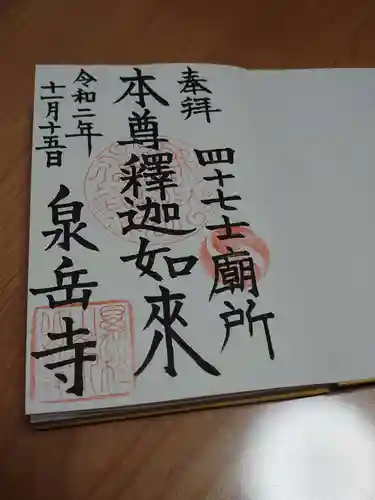 奉拝
四十七士廟所
本尊釋迦如來
令和二年
十一月十五日
泉岳寺